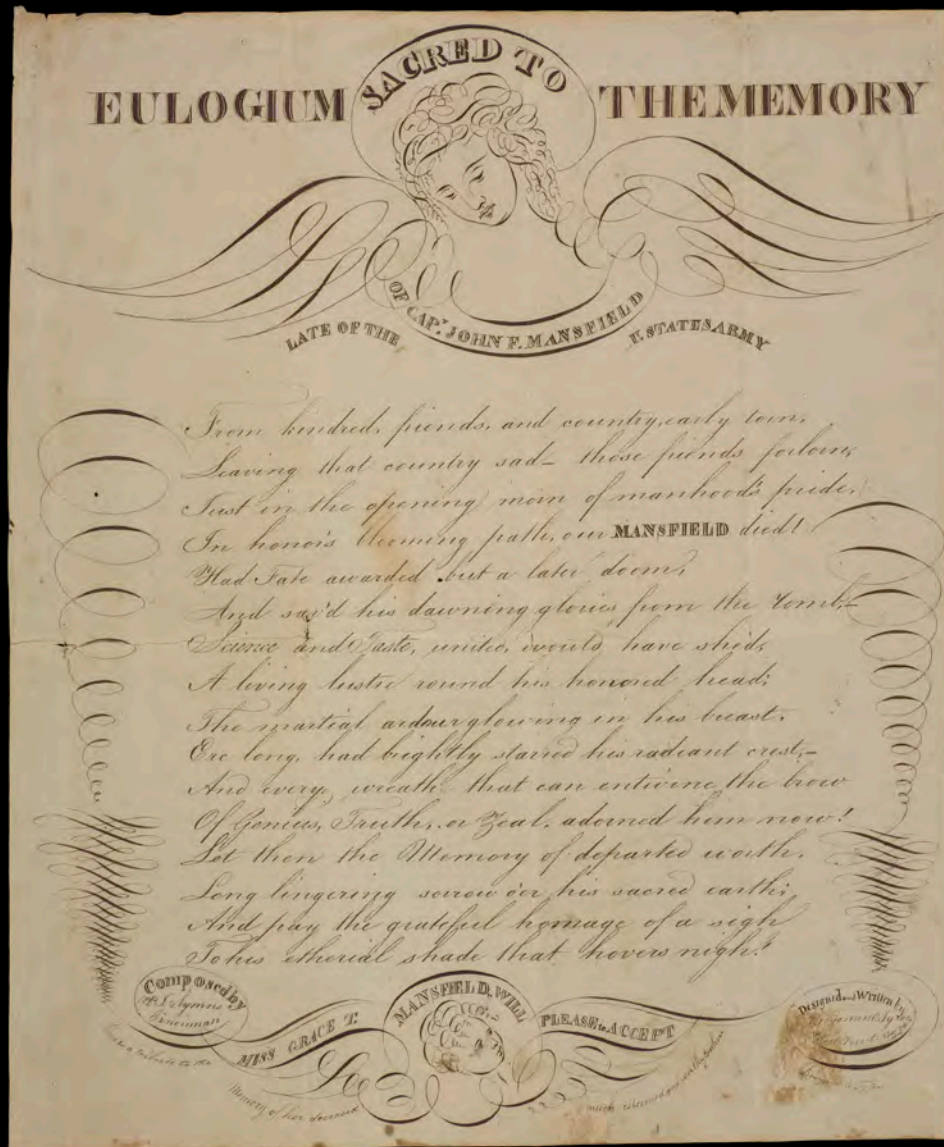 EULOGIUM SACRED TO THE MEMORY
OF CAPT. JOHN F. MANSFIELD
LATE OF THE U. STATES ARMY
From kindred, friends, and country, early torn,
Leaving that country sad_ those friends forlorn,
Just in the opening morn of manhood's pride,
In honor's blooming path, our MANSFIELD died!
Had Fate awarded but a later doom,
And sav'd his dawning glories from the tomb,_
Science and Taste, united, would have shed,
A living lustre round his honored head;
The martial ardour glowing in his breast,
Ere long, had brightly starred his radiant crest,_
And every wreath that can entwine the brow
Of Genius, Truth, or Zeal, adorned him now!
Let then the Memory of departed worth,
Long lingering sorrow o'er his sacred earth;
And pay the grateful homage of a sigh
To his etherial shade that hovers nigh!
Composed by
Cincinnati
MISS GRACE T. MANSFIELD, WILL PLEASE to ACCEPT
as a tribute to the
Memory of her deceased
much esteemed and
Designed and Written by